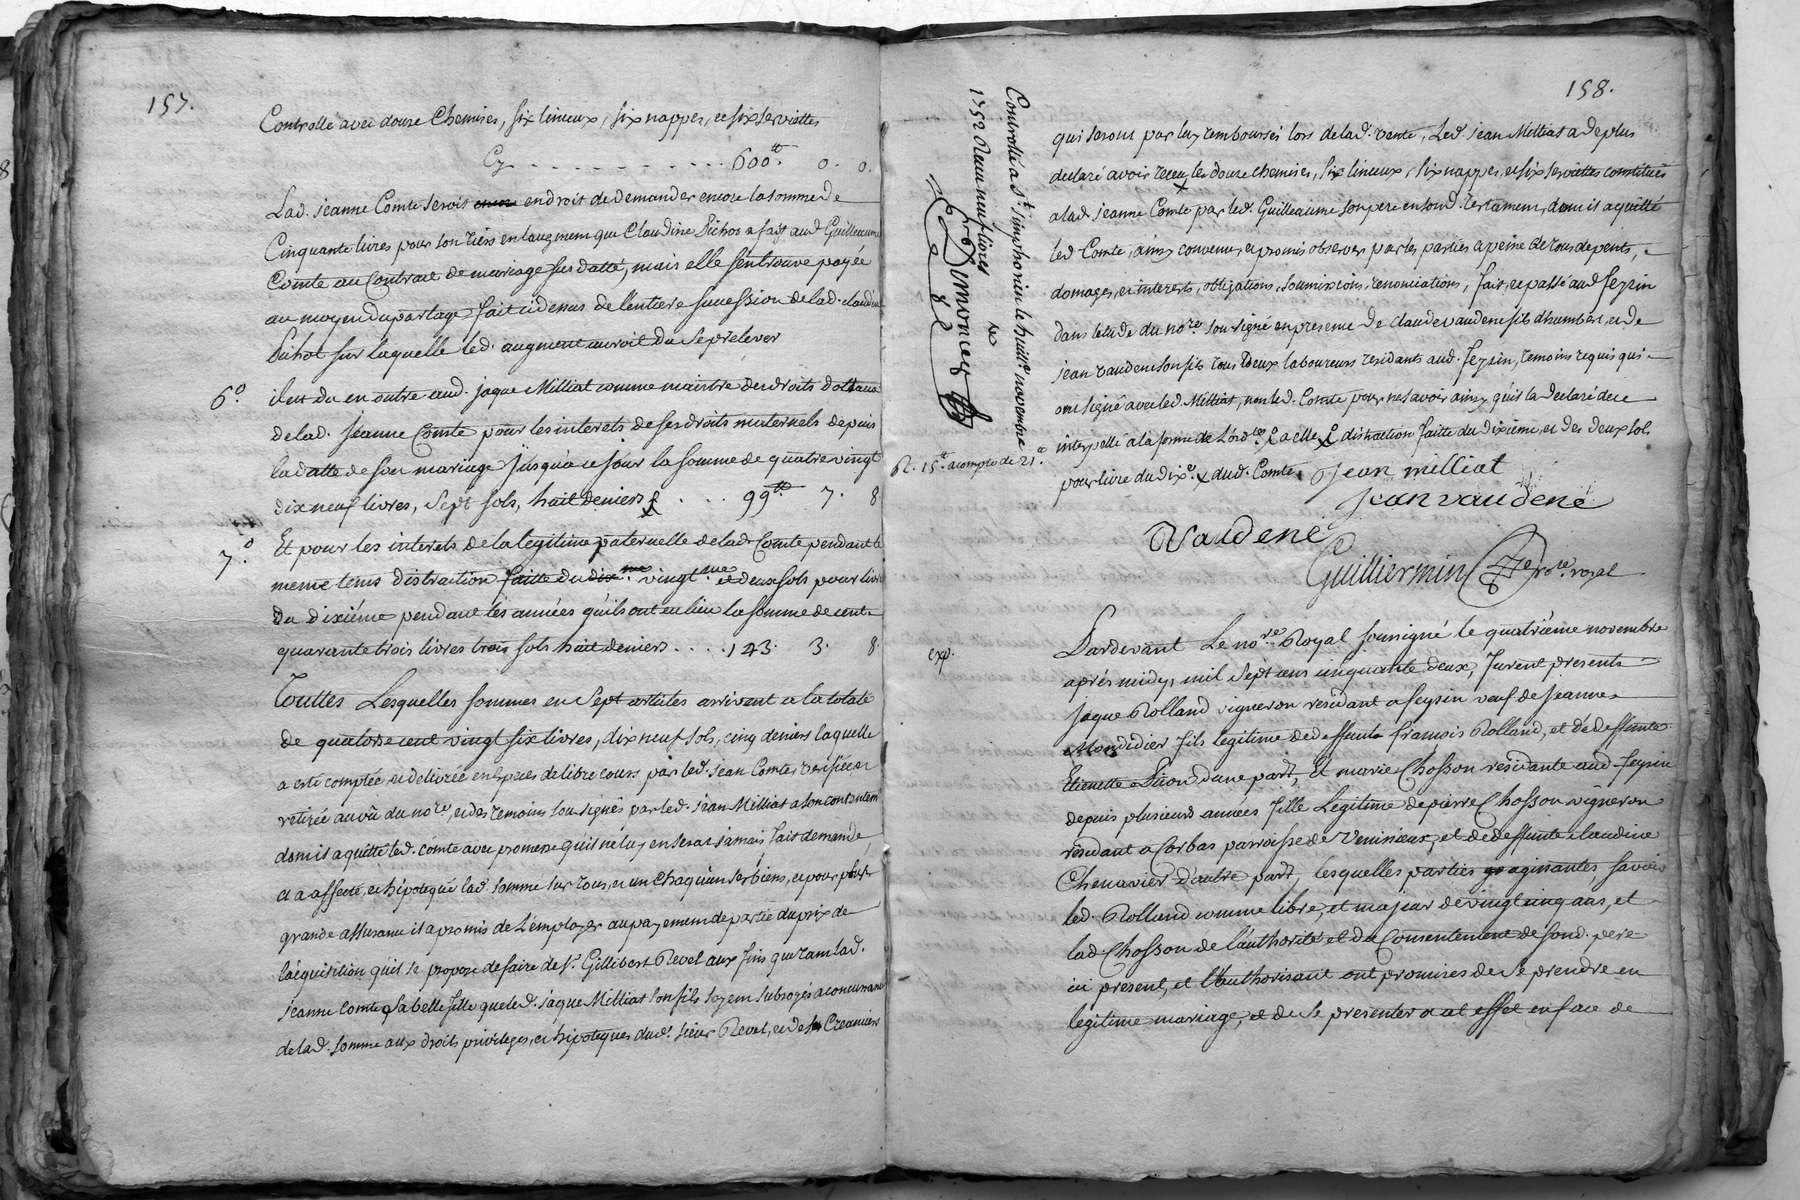 157.
Controllé avec douze Chemises, six linceux, six nappes, et six serviettes
Cy . . . . . . . . . . . . . . . 600.tt 0. 0.
Lad. jeanne Comte seroit en droit de demander encore la somme de
Cinquante livres pour son tiers en laugment que Claudine Pichot a fait aud. Guilleaume
Comte au Contract de mariage sus datté, mais elle sen trouve payée
au moyen du partage fait cidenus de lentiere sucession de lad. claudine
Pichot sur laquelle led. augment auroit du se prelever
6.o il est du en outre aud. jaque Milliat comme maistre des droits dottaux
de lad. jeanne Comte pour les interets de ses droits maternels depuis
la datte de son mariage jusqua ce jour la somme de quatre vingt
dix neuf livres, sept sols, huit deniers . . . . 99.tt 7. 8
7.o Et pour les interets de la legitime paternelle de lad. Comte pendant le
meme tems distraction faitte du vingt.me et deux sols pour livre
du dixiéme pendant les années quils ont eu lieu la somme de cent
quarante trois livres trois sols huit deniers . . . . 143. 3. 8
Touttes Lesquelles sommes en sept articles arrivent a la totale
de quatorse cent vingt six livres, dix neuf sols, cinq deniers laquelle
a esté comptée et delivrée en especes de libre cours par led. jean Comte, verifiée et
retirée au vû du no.re, et des temoins sousignés par led. jean Milliat a son contentem.
dont il a quitté led. comte avec promesse quil ne luy en sera jamais fait demande,
et a affecté, et hipotequé lad. somme sur tous, et un chaquun ses biens, et pour plus
grande assurance il a promis de Lemployer au payement de partie du prix de
laéquisition quil se propose de faire de s.r Gillibert Revel aux fins que tant lad.
jeanne Comte sa belle fille que led. jaque Milliat son fils soyent subrogés a concurrance
de lad. somme aux droits, privileges, et hipoteques dud. sieur Revel, et de ses Creanciers
158.
Controllé a S.t simphorien le huit.e novembre
1752 Receu neuf livres
R. 15.tt acompte de 21.tt
qui seront par luy remboursés lors de lad. vente, Led. jean Milliat a de plus
declaré avoir receu les douze chemises, six linceux, six nappes, et six serviettes constitués
a lad. jeanne Comte par led. Guilleaume son pere en sond. testament, dont il a quitté
led. Comte, ainsy convenu, et promis observer par les parties a peine de tous depents,
domages, et interests, obligations, soumixions, renonciations, fait, et passé aud. feyzin
dans letude du no.re sousigné en presence de claude vaudene fils dhumbert, et de
jean vaudene son fils tous deux laboureurs residants aud. feyzin, temoins requis qui
ont signé avec led. Milliat, non led. Comte pour ne savoir ainsy quil la declaré de ce
interpellé a la forme de lord.ce a elle distraction faitte du dixieme, et des deux sols
pour livre du dix.e dud. Comte jean milliat
jean vaudene
Vaudene
Guilliermin no.re royal
exp.
Pardevant Le no.re Royal soussigné le quatriéme novembre
aprés midy, mil sept cens cinquante deux, furent presents
jaque Rolland vigneron residant a feyzin veuf de jeanne
Mondidier fils legitime de deffunt francois Rolland, et de deffunte
Etienette Sicond dune part, Et marie Chosson residante aud. feyzin
depuis plusieurs années fille legitime de pierre Chosson vigneron
residant a Corbas parroisse de venissieux, et de deffunte claudine
Chenavier d'autre part, lesquelles parties agissantes, savoir
led. Rolland comme libre, et majeur de vingt cinq ans, et
lad. Chosson de l'authorité et du Consentement de sond. pere
ici present, et l'authorisant ont promises de se prendre en
légitime mariage, et de se presenter a cet effet en face de